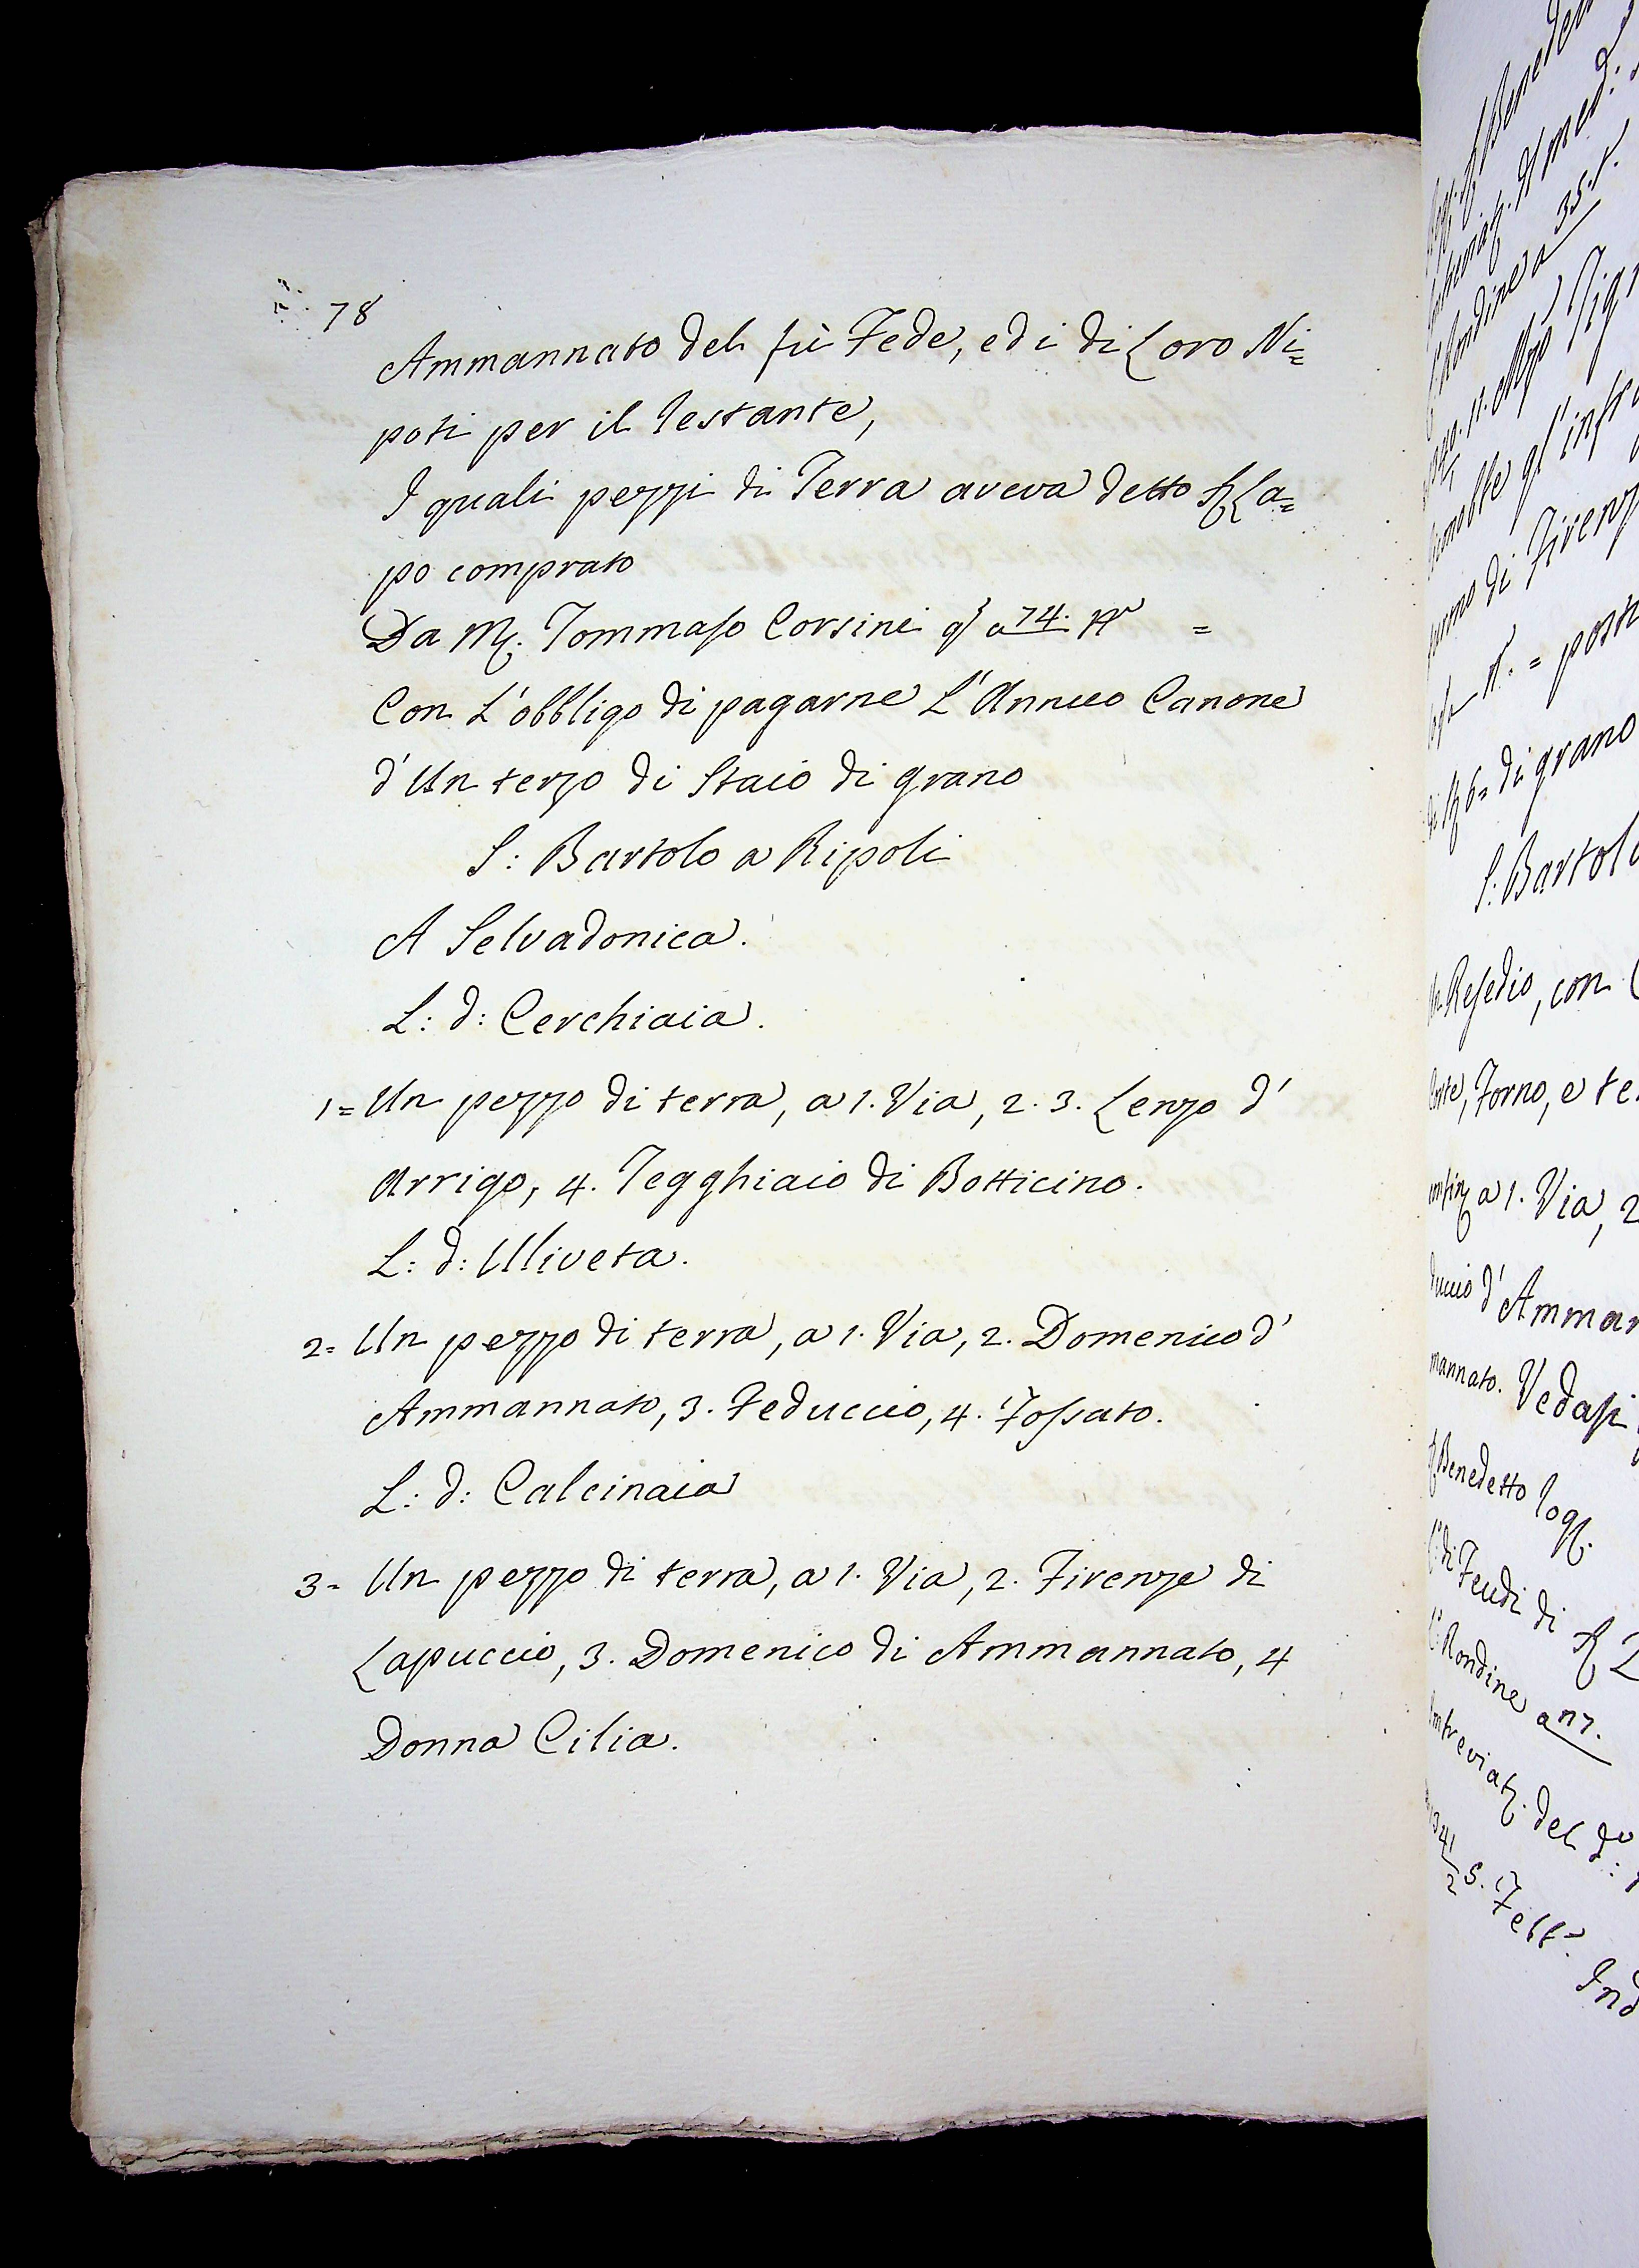 78
Ammannato del fù Fede, ed i di Loro Ni=
poti per il restante,
I quali pezzi di Terra aveva detto Sr La=
po comprato
Da M. Tommaso Corsini q a 74.
Con L'obbligo di pagarne L'Annuo Canone
d'Un terzo di Staio di grano
S: Bartolo a Ripoli
A Selvadonica.
L: d: Cerchiaia.
1= Un pezzo di terra, a 1. Via, 2. 3. Lenzo d'
Arrigo, 4. Tegghiaio di Botticino.
L: d: Uliveta.
2= Un pezzo di terra, a 1. Via, 2. Domenico d'
Ammannato, 3. Feduccio, 4. Fossato.
L: d: Calcinaia
3= Un pezzo di terra, a 1. Via, 2. Firenze di
Lapuccio, 3. Domenico di Ammannato, 4
Donna Cilia.
Rondine a 35.
gl'infr
di Firenz
= posti
6= di grano
S: Bartolo
Resedio, con
Forno, e te
a 1. Via, 2
d'Amman
mannato. Vedasi
Benedetto rog.
di Feudi di
Rondine a
del do:
S. Febb. Ind